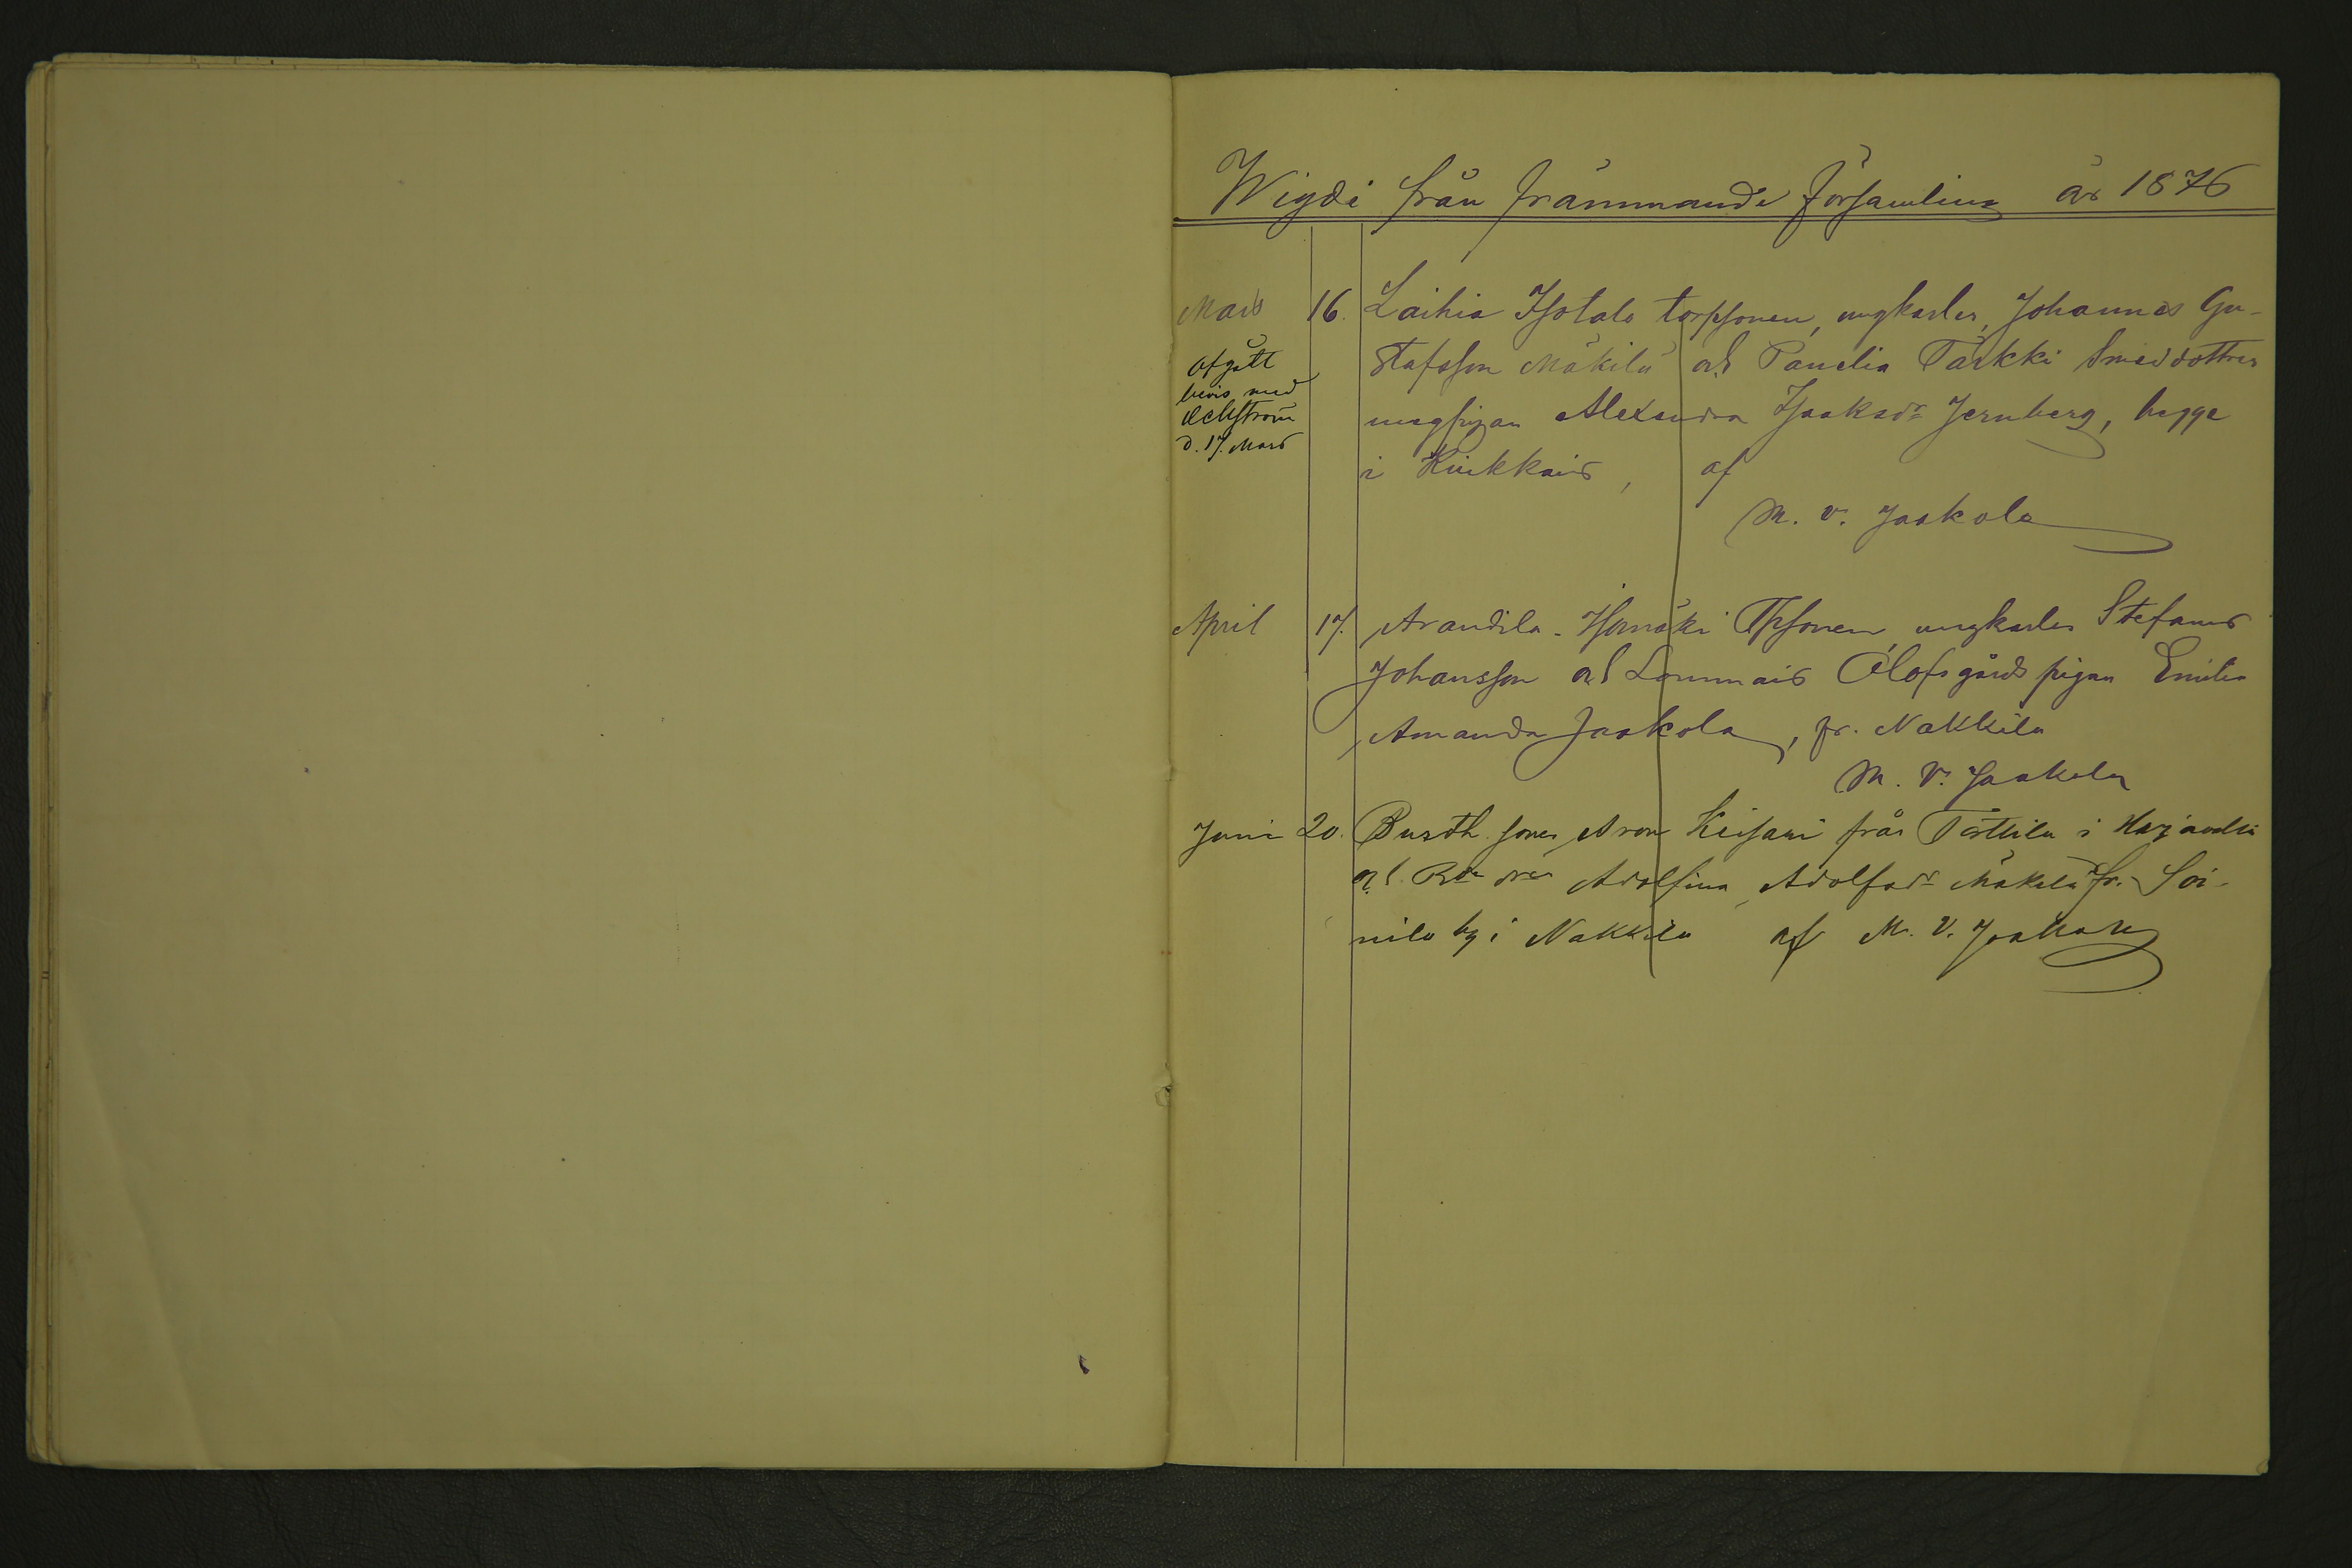 Wigde från främmande församling år 1876
Mars 16. Laihia Isotalo torpsonen, ungkarlen, Johannes Gu-
stafsson Mäkilä och Panelia Tarkki Smeddottren
ungpigan Alexandra Isaksdr Jernberg, begge
i Kiukkais, af
M. V. Jaakola
Afgått
bevis med
Eckström
d. 17. Mars
April 17. Arandila Isomäki Tpsonen ungkarlen Stefanus
Johansson och Lammais Olofsgårds pigan Emilia
Amanda Jaakola, fr. Nakkila
M. V. Jaakola
Juni 20. Busth. sonen Aron Keisari från Torttila i Harjavalta
och Bde dren Adolfina Adolfsdr Mäkelä fr. Soi-
nila by i Nakkila af M. V. Jaakola